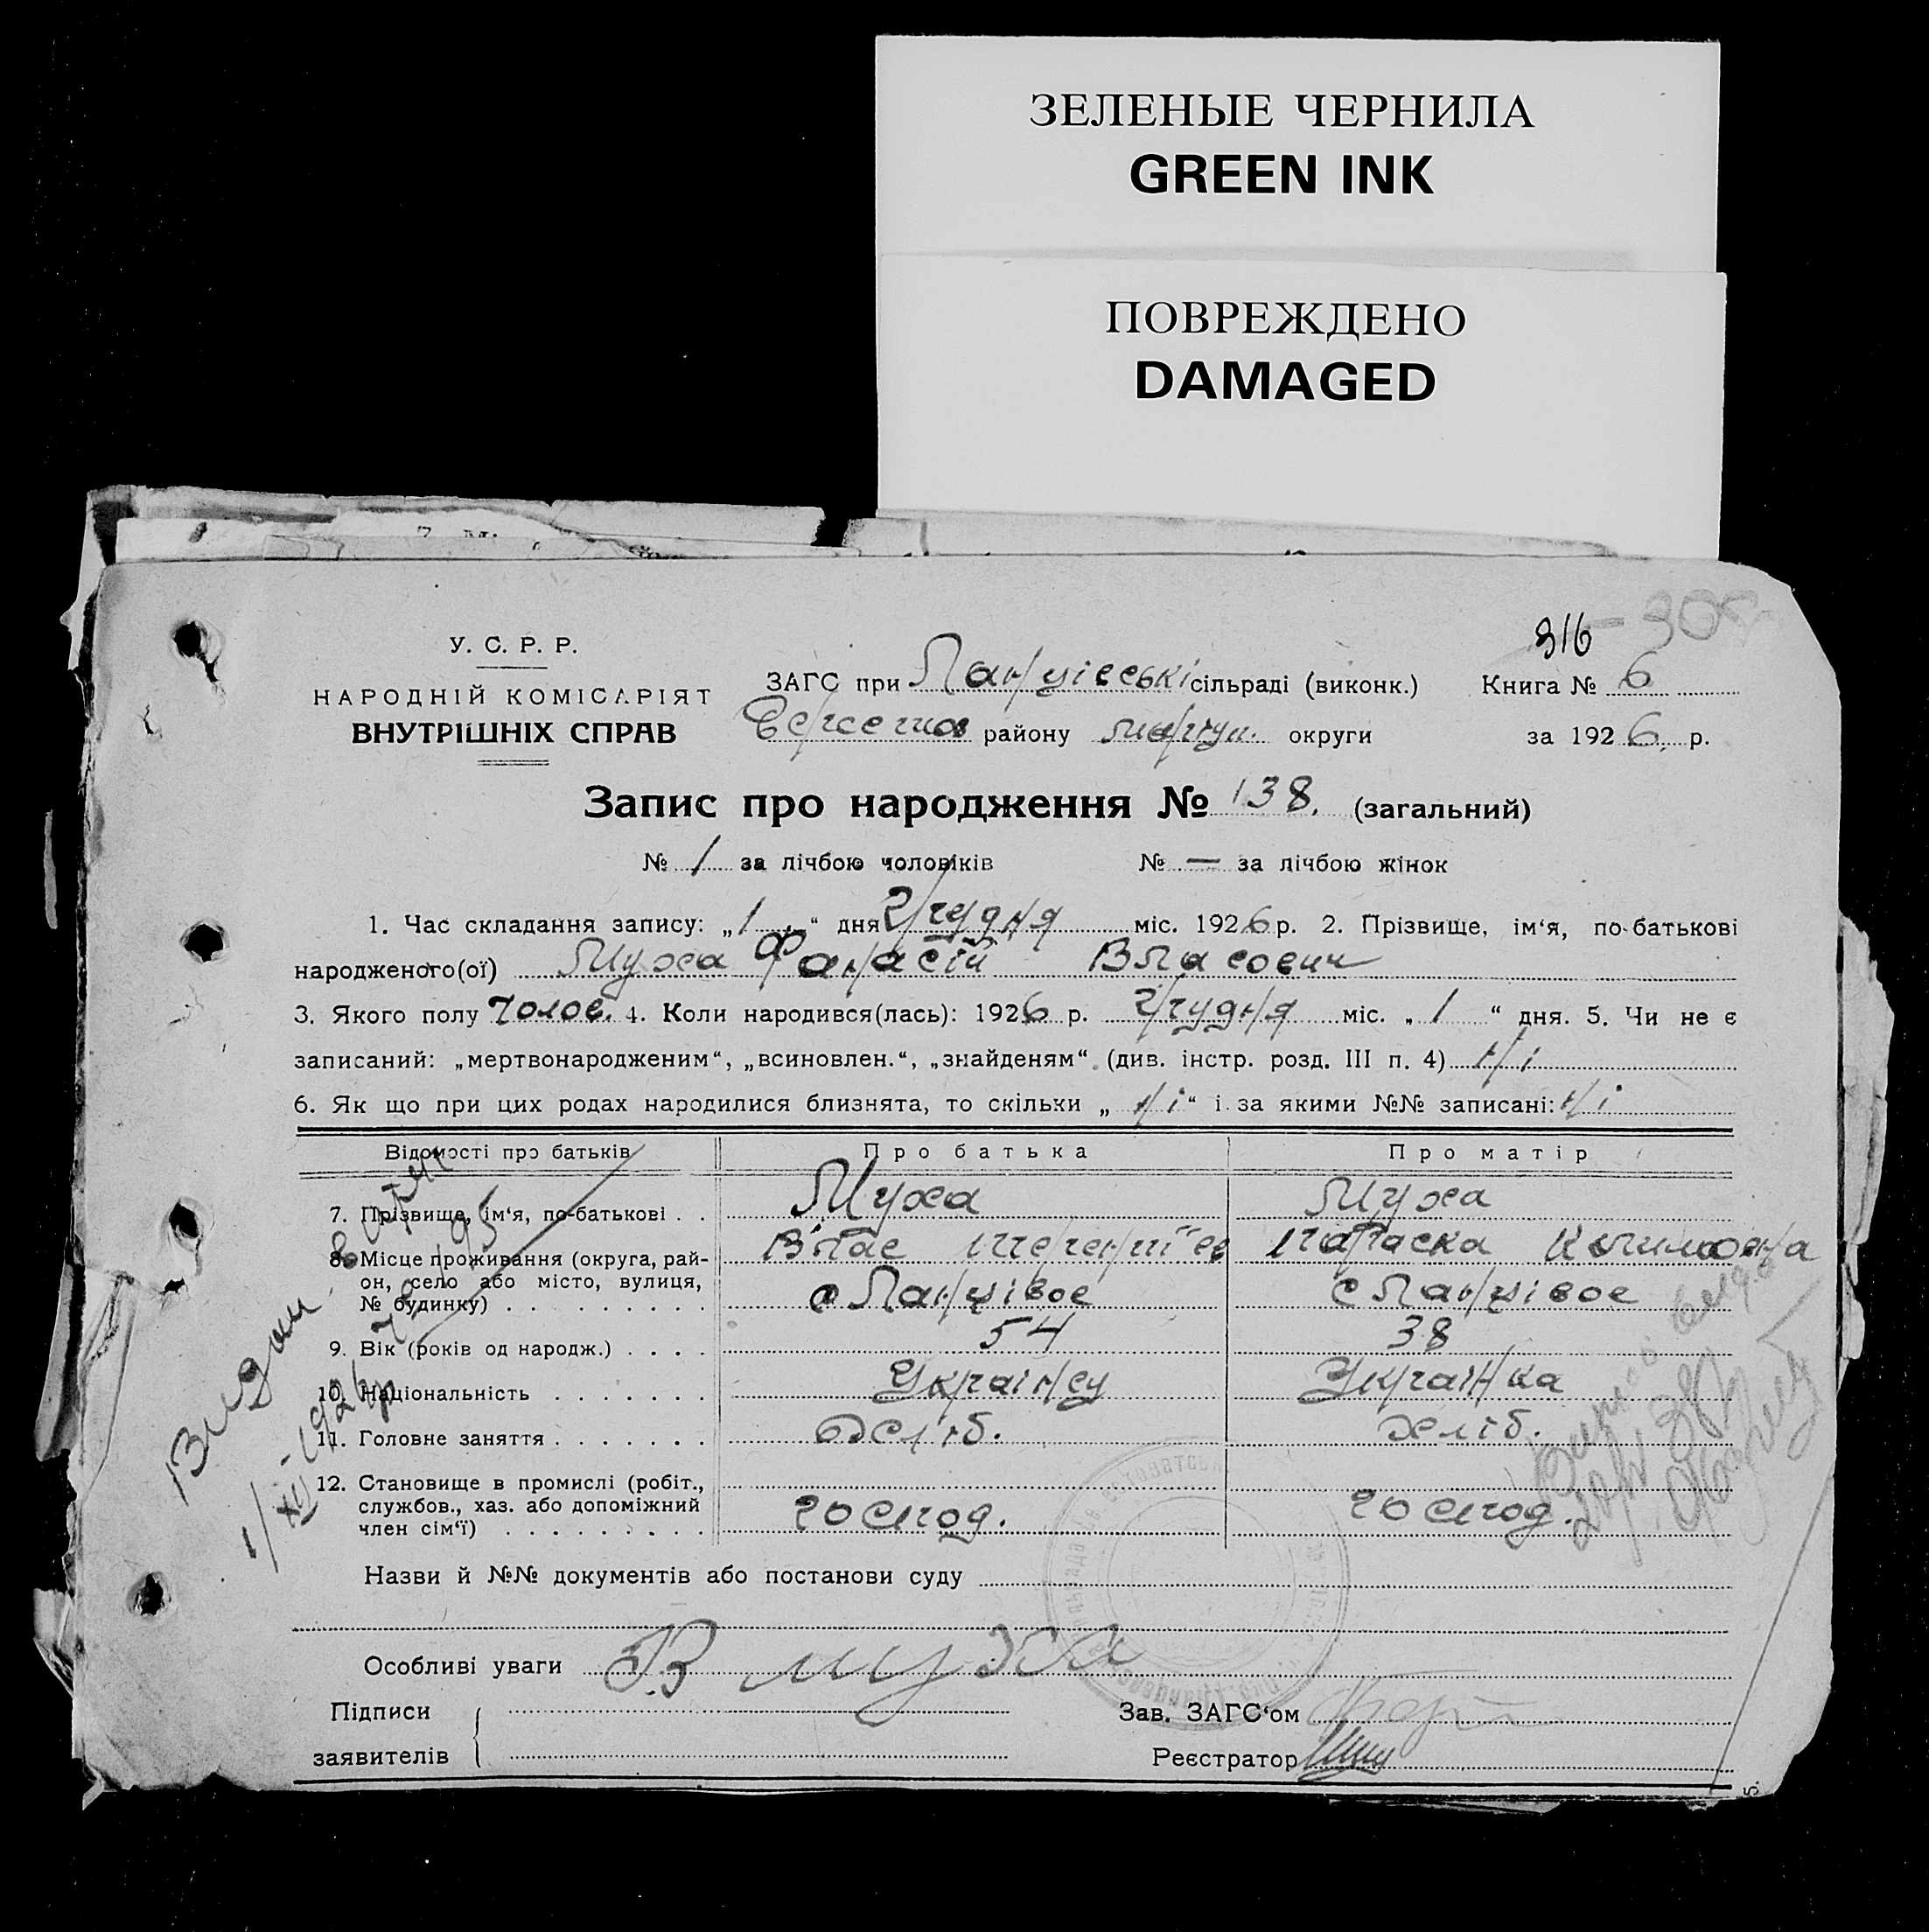 ЗЕЛЕНЫЕ ЧЕРНИЛА
GREEN INK
ПОВРЕЖДЕНО
DAMAGED
316
У. С. Р. Р.
НАРОДНІЙ КОМІСАРІЯТ
ВНУТРІШНІХ СПРАВ
ЗАГС при сільраді (виконк.) Книга № 6
району округи за 1926 р.
Запис про народження № 138. (загальний)
№ 1 за лічбою чоловіків № — за лічбою жінок
1. Час складання запису: „1“ дня Грудня міс. 1926 р. 2. Прізвище, ім‘я, по-батькові
народженого(ої) Муха Фанасій Власович
3. Якого полу Чолов. 4. Коли народився(лась): 1926 р. Грудня міс. „1“ дня. 5. Чи не є
записаний: „мертвонародженим“, „всиновлен.“, „знайденям“. (див. інстр. розд. III п. 4) Ні
6. Як що при цих родах народилися близнята, то скільки „ні“ і за якими №№ записані: Ні
Відомості про батьків Про батька Про матір
7. Прізвище, ім‘я, по-батькові . . Муха Муха
Влас Параска
8. Місце проживання (округа, рай-
он, село або місто, вулиця,
№ будинку) . . . . . . . . . с Панцівое с Панцівое
9. Вік (років од народж.) . . . . 54 38
10. Національність . . . . . . . Українец Українка
11. Головне заняття . . . . . . . Хліб. Хліб.
12. Становище в промислі (робіт.,
службов., хаз. або допоміжний
член сім‘ї) . . . . . . . . . господ. господ.
Назви й №№ документів або постанови суду
Особливі уваги В Муха
Підписи
заявителів
Зав. ЗАГС‘ом
Реєстратор